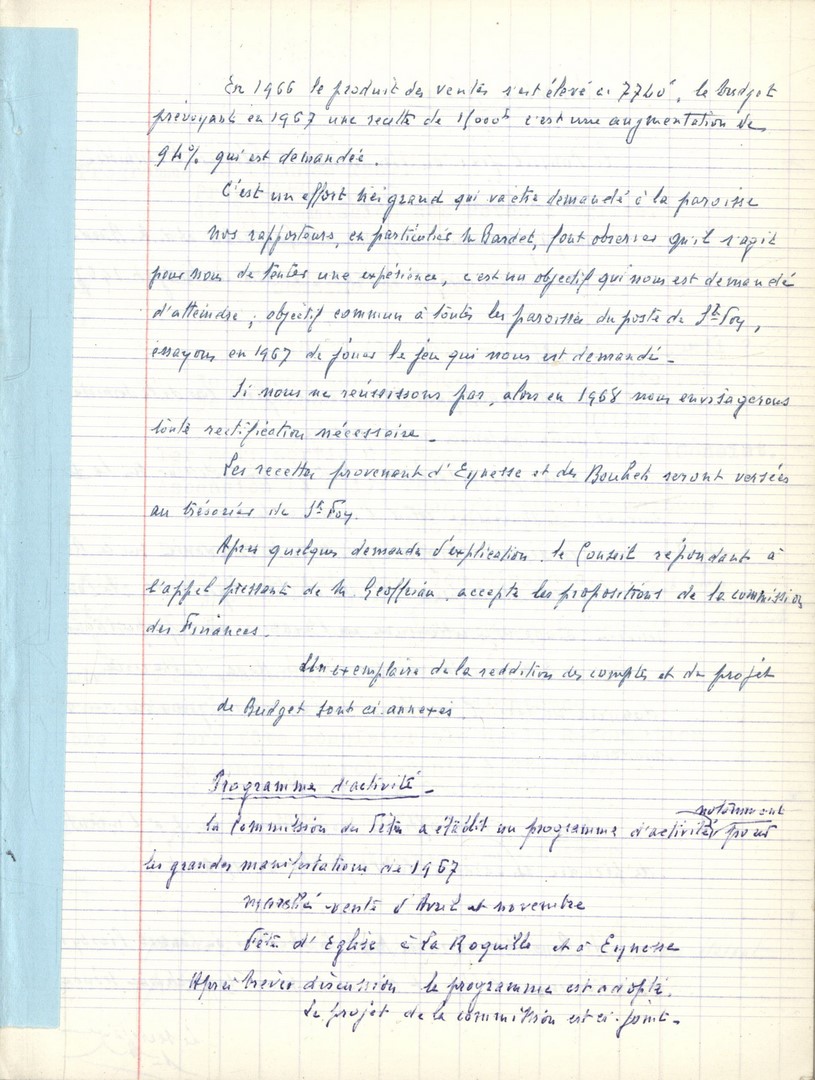 En 1966 le produit des ventes s'est élevé à 7740F, le budget
prévoyant en 1967 une recette de 15000F c'est une augmentation de
94% qui est demandée.
C'est un effort très grand qui va être demandé à la paroisse
Nos rapporteurs, en particulier M Bardet, font observer qu'il s'agit
pour nous de tenter une expérience, c'est un objectif qui nous est demandé
d'atteindre; objectif commun à toutes les paroisses du poste de Ste Foy,
essayons en 1967 de jouer le jeu qui nous est demandé -
Si nous ne réussissons pas, alors en 1968 nous envisagerons
toute rectification nécessaire -
Les recettes provenant d'Eynesse et des Bouhets seront versées
au trésorier de Ste Foy.
Après quelques demandes d'explication, le Conseil répondant à
l'appel pressant de M. accepte les propositions de la commission
des Finances.
Un exemplaire de la reddition des comptes et du projet
de Budget sont ci-annexés
Programme d'activité -
La Commission des Fêtes a établit un programme d'activités notamment pour
les grandes manifestations de 1967
marché-vente d'Avril et novembre
Fête d'Eglise à La Roquille et à Eynesse
Après brève discussion le programme est adopté.
Le projet de la commission est ci-joint -